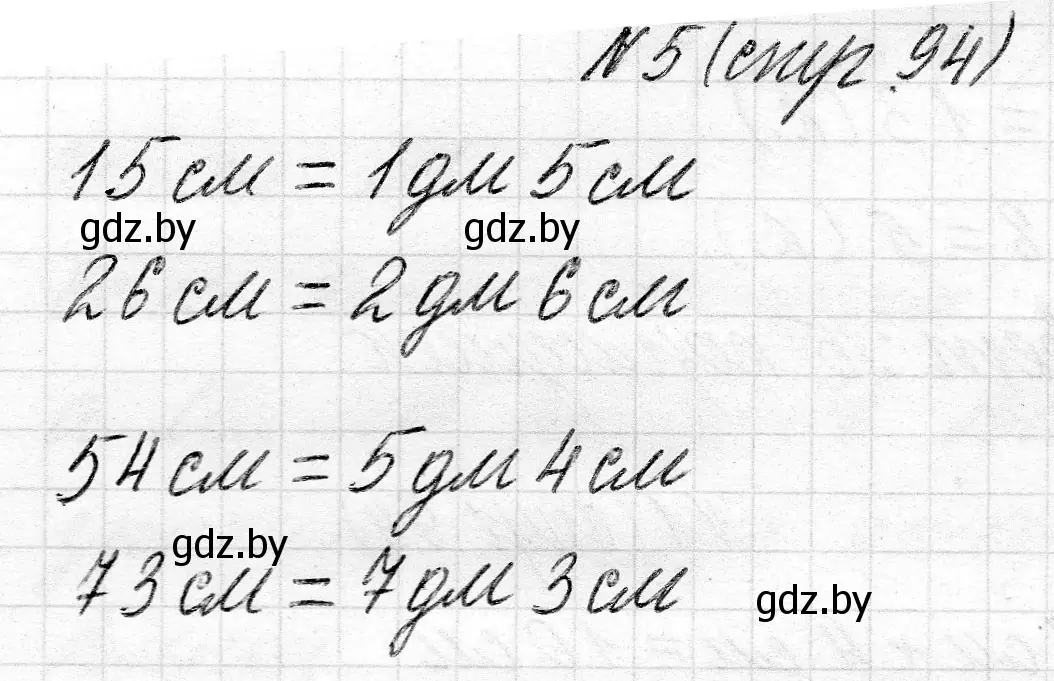 №5 (стр. 94)
15 см = 1 дм 5 см
gdz.by gdz.by
26 см = 2 дм 6 см
54 см = 5 дм 4 см
gdz.by
73 см = 7 дм 3 см
gdz.by